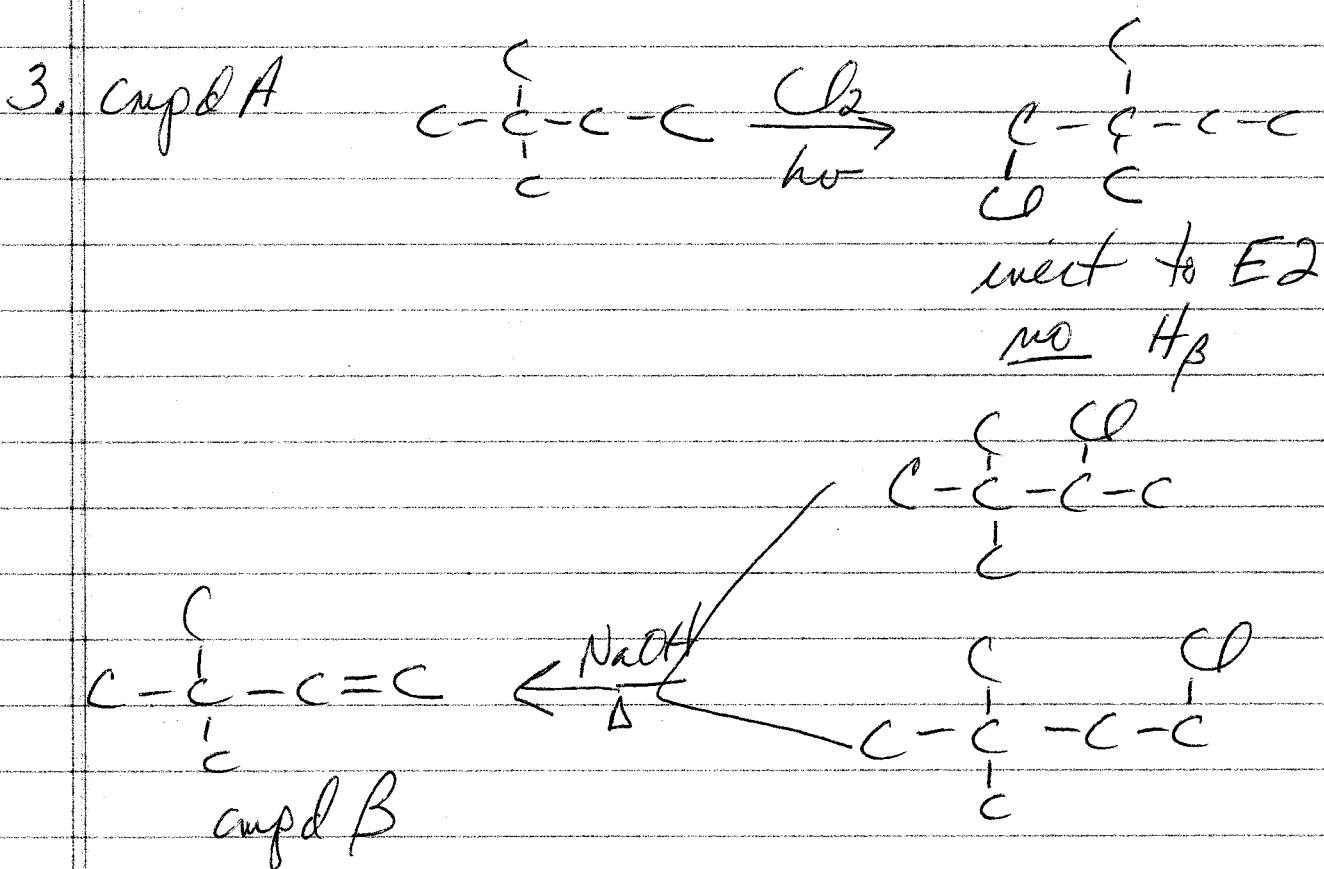 3. cmpd A
C
C-C-C-C
C
Cl2
hν
C
C-C-C-C
Cl C
inert to E2
no Hβ
C Cl
C-C-C-C
C
C
C-C-C=C
C
NaOH
Δ
C Cl
C-C-C-C
C
cmpd B